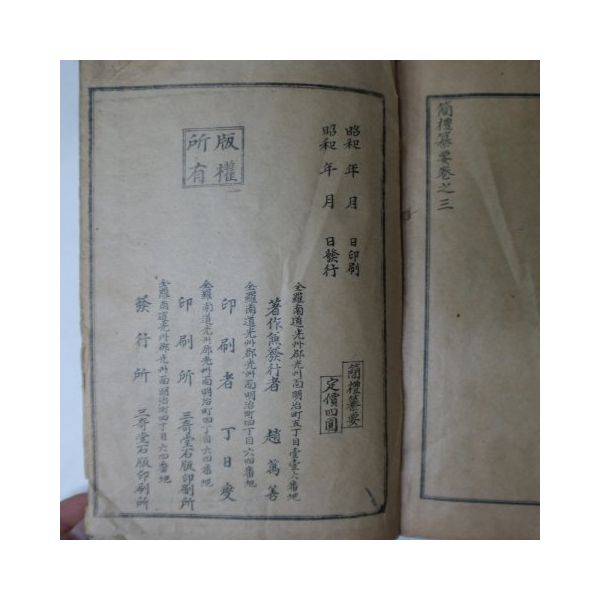 簡禮纂要卷之三
昭和 年 月 日印刷
昭和 年 月 日發行
版權
所有
簡禮纂要
定價四圓
全羅南道光州郡光州面明治町五丁目壹壹六番地
著作兼發行者 趙萬善
全羅南道光州郡光州面明治町四丁目六四番地
印刷者 丁日燮
全羅南道光州郡光州面明治町四丁目六四番地
印刷所 三奇堂石版印刷所
全羅南道光州郡光州面明治町四丁目六四番地
發行所 三奇堂石版印刷所